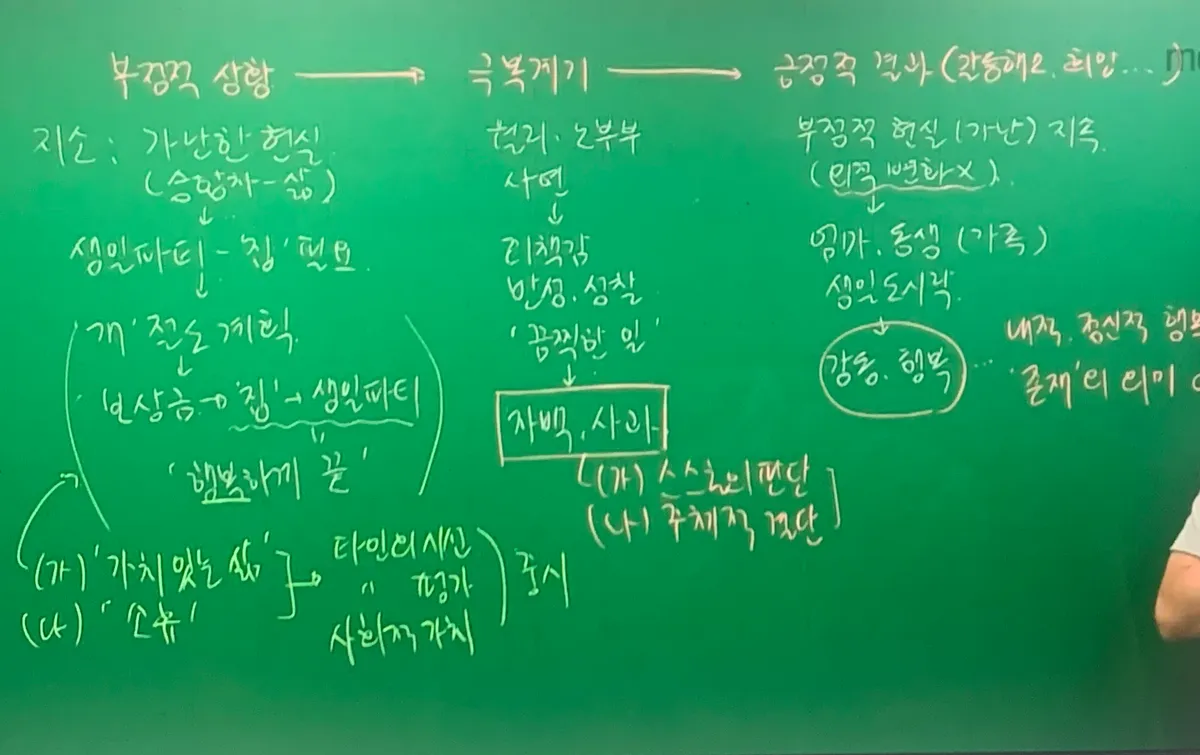 부정적 상황 → 극복계기 → 긍정적 결과 (갈등해소, 희망...)
지소 : 가난한 현실
(승합차-삶)
↓
생일파티 - '집' 필요
↓
'개' 절도 계획
↓
보상금 → '집' → 생일파티
"
'행복하게 끝'
(가) '가치 있는 삶'
(나) '소유'
→ 타인의 시선
" 평가
사회적 가치
중시
노부부
사연
↓
죄책감
반성, 성찰
'끔찍한 일'
↓
자백, 사과
(가) 스스로의 판단
(나) 주체적 결단
부정적 현실 (가난) 지속
(외적 변화 X)
↓
엄마, 동생 (가족)
생일도시락
↓
감동, 행복 ...
내적, 정신적
'존재'의 의미